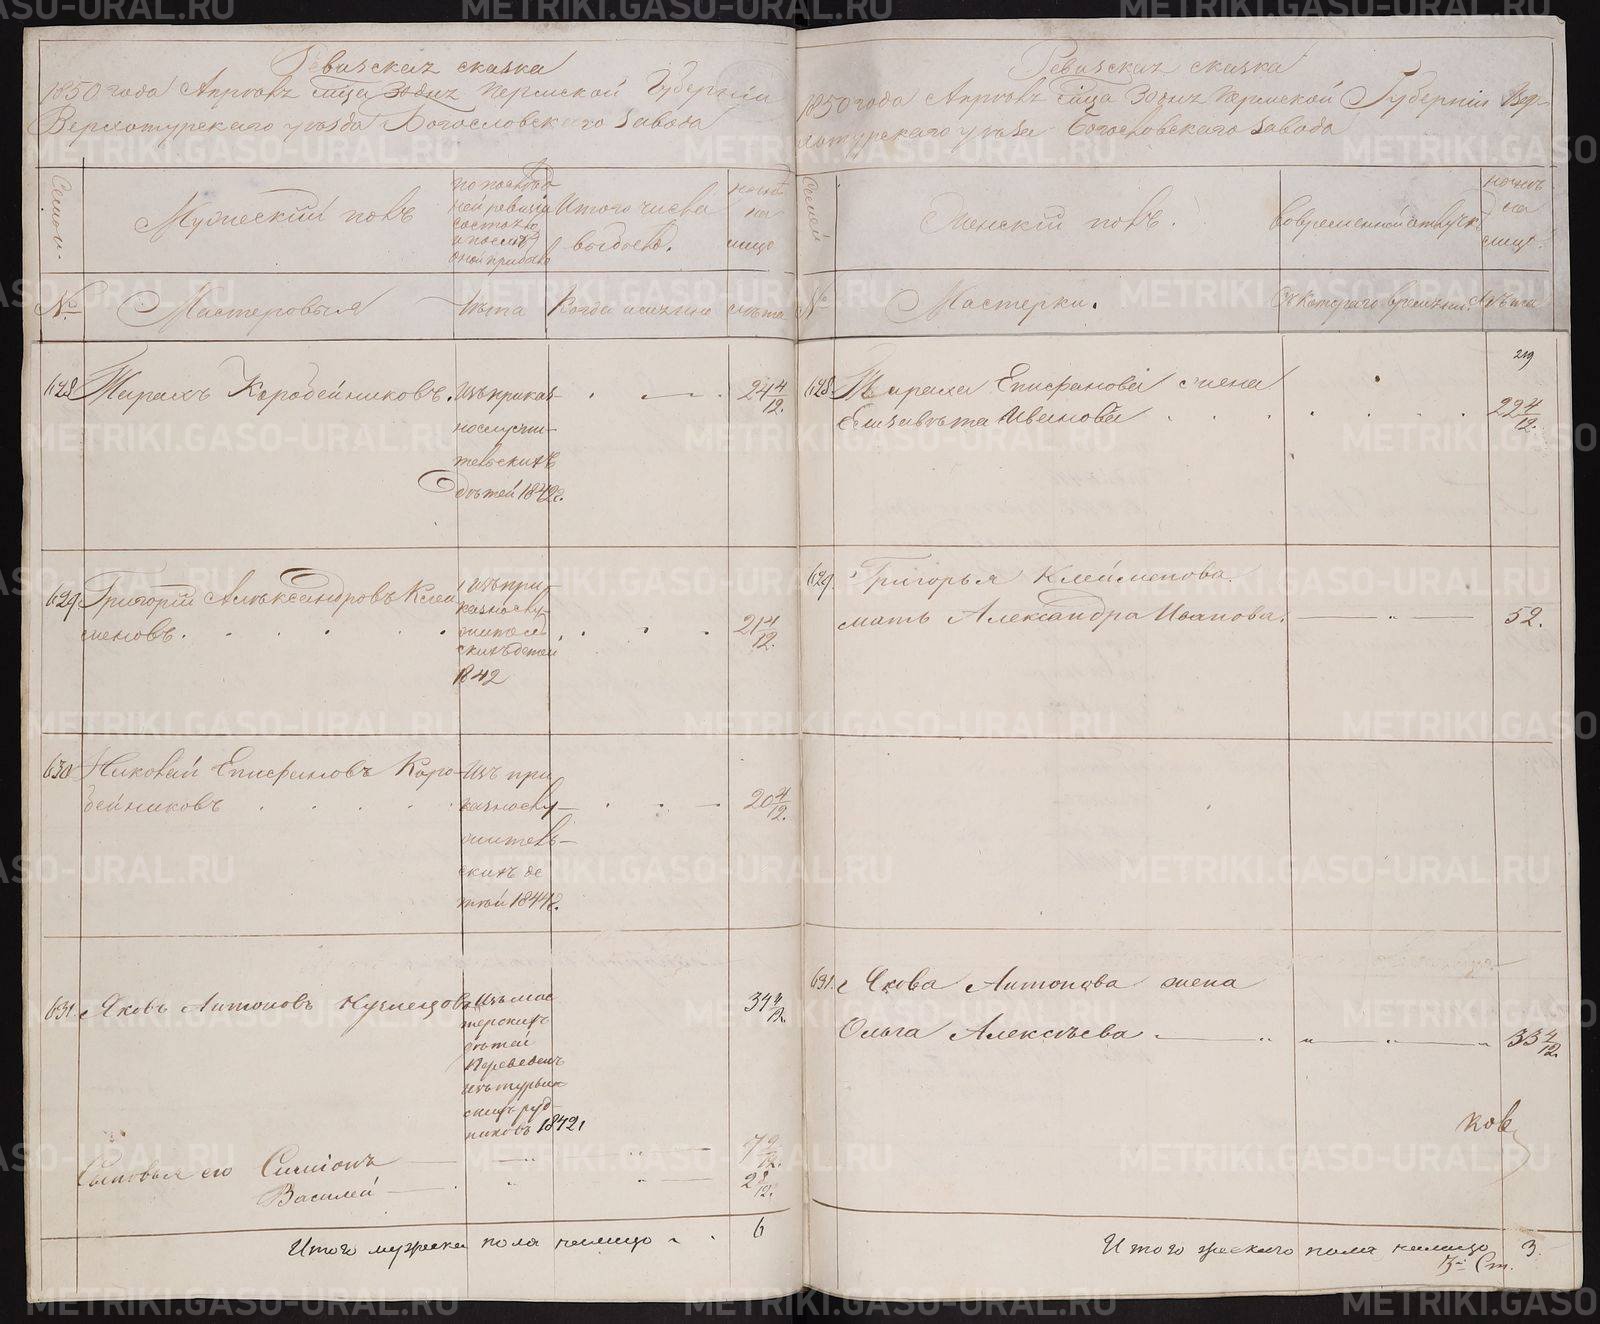 Ревизская сказка
1850 года Апреля месяца 30 дня Пермской Губернии
Верхотурского уезда Богословского завода
Семьи.
Мужеский полъ
по последней ревизии состояло и после оной прибыло
Изтого числа выбыло.
ныне на лицо
№
Мастеровыя
Лета
Когда именно
лета
628
Тарахъ Коробейниковъ.
Изъ приказ-
нослужи-
тельскихъ
детей 1842.
24 4/12.
629
Григорий Александровъ Клей-
меновъ.
Изъ при-
казнослу-
жител
скихъ детей
1842
21 4/12.
630
Николай Епифановъ Коро-
бейниковъ
Изъ при
казнослу-
жителъ-
скихъ де
тей 1844
20 4/12.
631.
Яковъ Антоновъ Кузнецовъ
Изъ мас
терскихъ
детей
переведенъ
изъ турьин
скихъ руд-
никовъ 1842
34 4/12.
Сыновья его Симионъ
Василей
2 8/12.
Итого мужеска пола налицо
6
Ревизская сказка
1850 года Апреля месяца 30 дня Пермской Губернии Вер-
хотурскаго уезда Богословскаго завода
Семьи
Женский полъ.
Вовременной отлучке
ныне на лицо.
№
Мастерки.
Съ котораго времени.
Лета
219
628.
Тараха Епифанова жена
Елизавета Иванова
22 4/12.
629.
Григорья Клейменова.
мать Александра Иванова.
52.
631.
Якова Антонова жена
Ольга Алексеева
33 4/12.
ков
Итого женскаго пола налицо
3.
METRIKI.GASO-URAL.RU